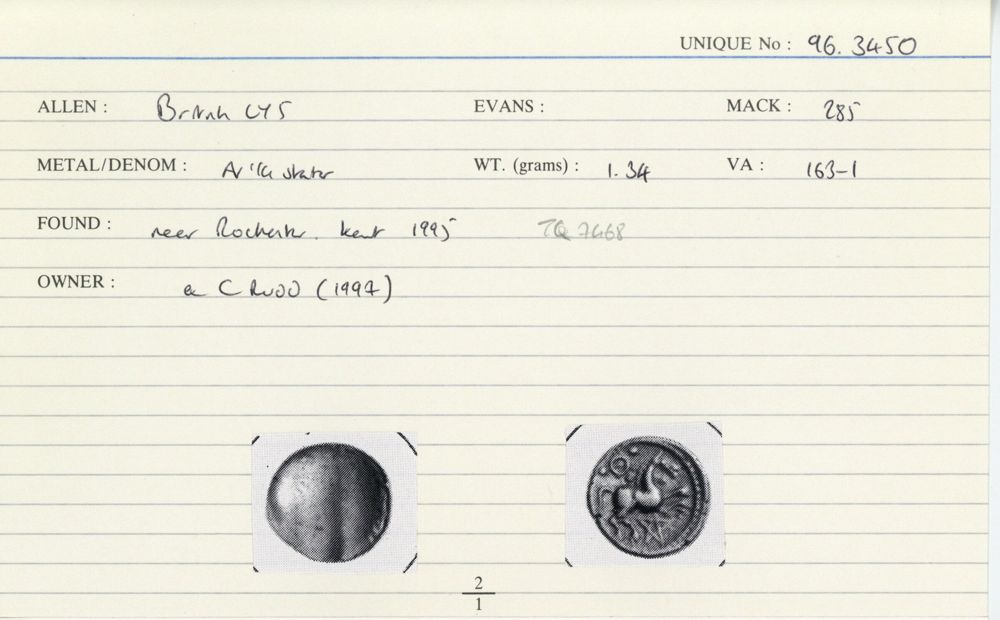 UNIQUE No : 96. 3450
ALLEN : British LY5 EVANS : MACK : 285
METAL/DENOM : AV 1/4 stater WT. (grams) : 1.34 VA : 163-1
FOUND : near Rochester. Kent 1995 TQ 7468
OWNER : ex C RUDD (1997)
2
1